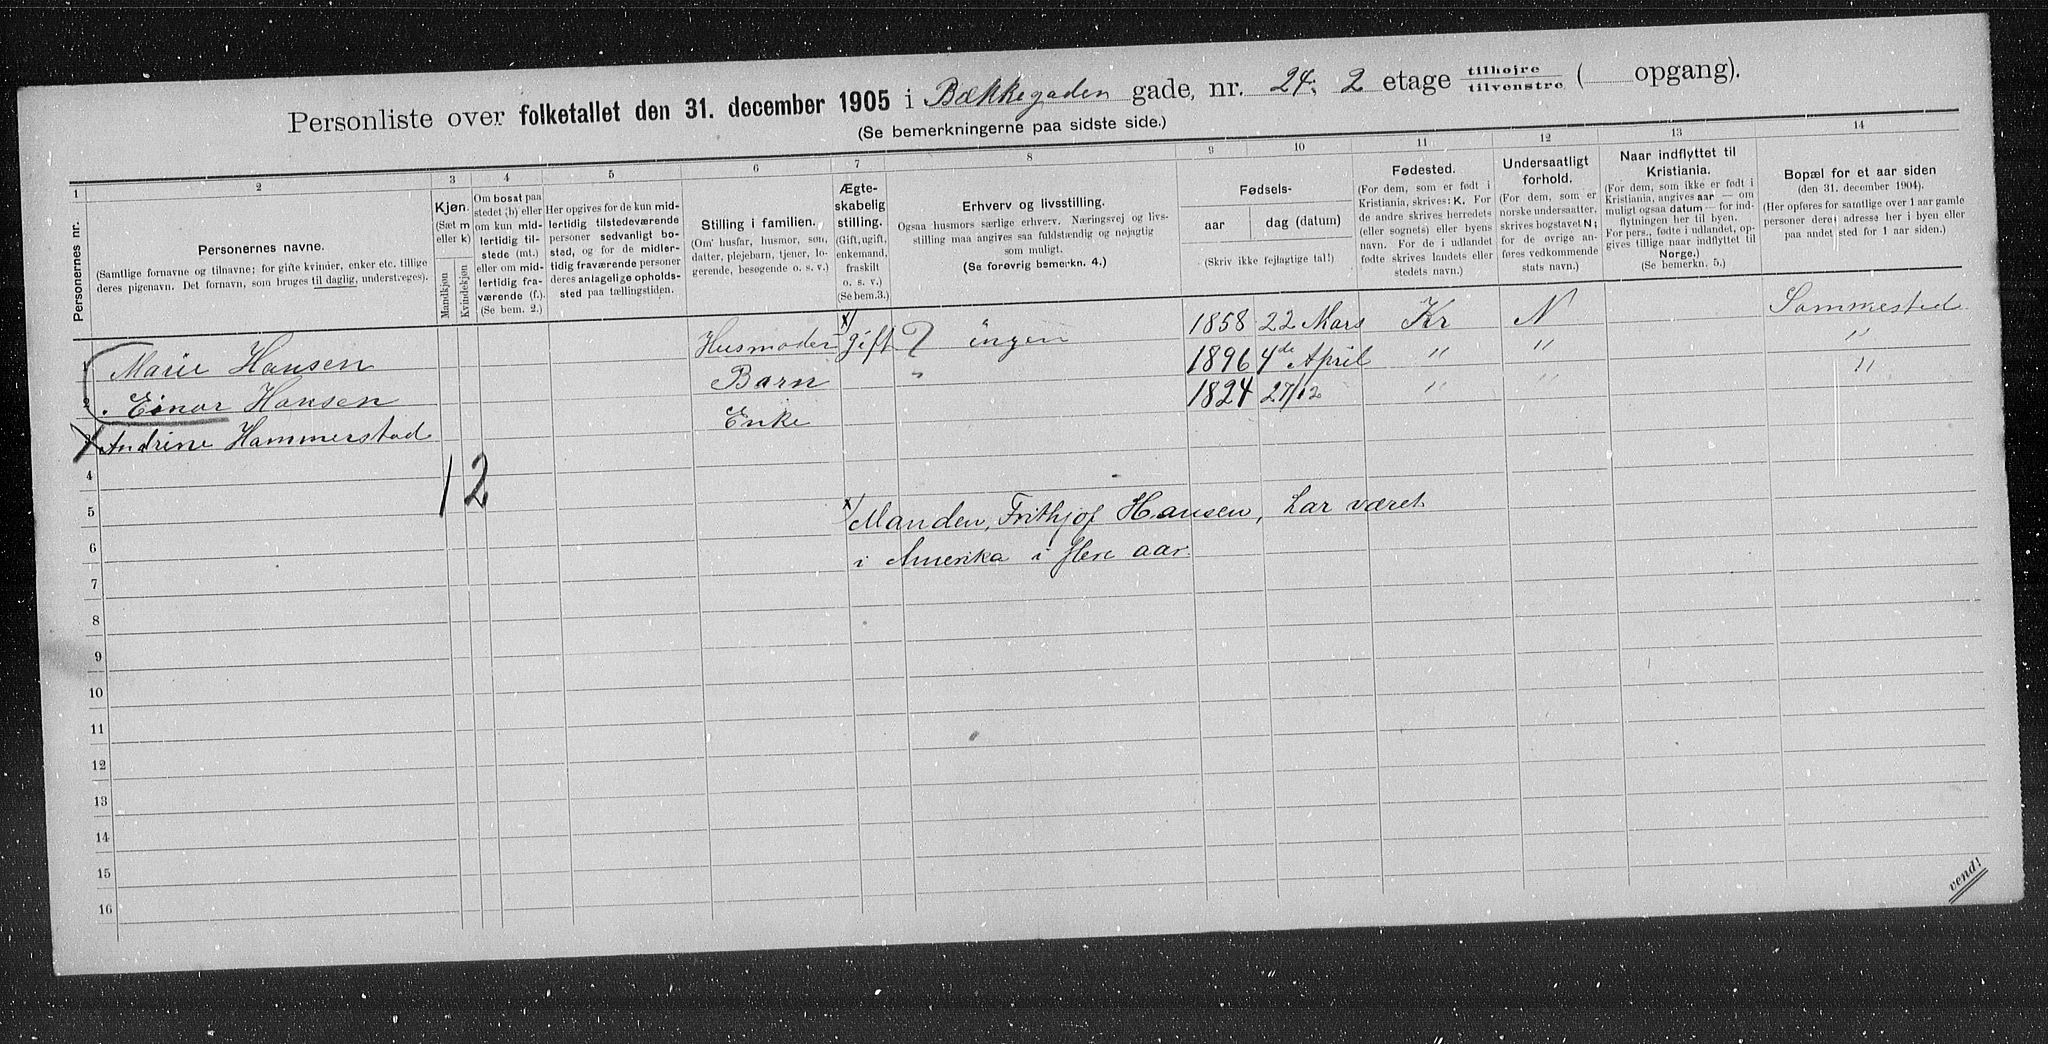 Personliste over folketallet den 31. december 1905 i Bækkegaden gade, nr. 24, 2 etage tilhøjre / tilvenstre ( opgang).
(Se bemerkningerne paa sidste side.)
1 2 3 4 5 6 7 8 9 10 11 12 13 14
Personernes nr.
Personernes navne.
(Samtlige fornavne og tilnavne; for gifte kvinder, enker etc. tillige
deres pigenavn. Det fornavn, som bruges til daglig, understreges).
Kjøn.
(Sæt m
eller k)
Mandkjøn
Kvindekjøn
Om bosat paa
stedet (b) eller
om kun mid-
lertidig til-
stede (mt.)
eller om mid-
lertidig fra-
værende (f.).
(Se bem. 2.)
Her opgives for de kun mid-
lertidig tilstedeværende
personer sedvanligt bo-
sted, og for de midler-
tidig fraværende personer
deres anlagelige opholds-
sted paa tællingstiden.
Stilling i familien.
(Om husfar, husmor, søn,
datter, plejebarn, tjener, lo-
gerende, besøgende o. s. v.)
Ægte-
skabelig
stilling.
(Gift, ugift,
enkemand,
fraskilt
o. s. v.)
(Se bem.3.)
Erhverv og livsstilling.
Ogsaa husmors særlige erhverv. Næringsvej og livs-
stilling maa angives saa fuldstændig og nøjagtig
som muligt.
(Se forøvrig bemerkn. 4.)
Fødsels-
aar dag (datum)
(Skriv ikke fejlagtige tal!)
Fødested.
(For dem, som er født i
Kristiania, skrives: K. For
de andre skrives herredets
(eller sognets) eller byens
navn. For de i udlandet
fødte skrives landets eller
stedets navn.)
Undersaatligt
forhold.
(For dem, som er
norske undersaatter,
skrives bogstavet N;
for de øvrige an-
føres vedkommende
stats navn.)
Naar indflyttet til
Kristiania.
(For dem, som ikke er født i
Kristiania, angives aar — om
muligt ogsaa datum — for ind-
flytningen her til byen.
For pers., fødte i udlandet, op-
gives tillige naar indflyttet til
Norge.)
(Se bemerkn. 5.)
Bopæl for et aar siden
(den 31. december 1904).
(Her opføres for samtlige over 1 aar gamle
personer deres adresse her i byen eller
paa andet sted for 1 aar siden.)
Marie Hansen Husmoder x) gift ? ingen 1858 22 Mars Kr N Sammested
Einar Hansen Barn " 1896 4de April " " "
x Andrine Hammerstad Enke 1824 27/12 " " "
4 1 2
5 x) Manden, Frithjof Hansen, har været
6 i Amerika i flere aar.
7
8
9
10
11
12
13
14
15
16
vend!